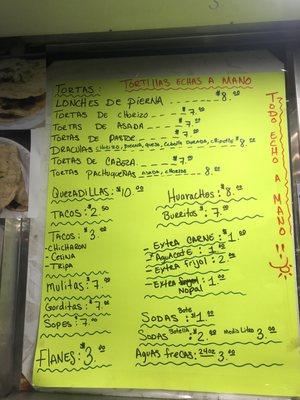 TORTILLAS ECHAS A MANO
TORTAS:
LONCHES DE PIERNA $8.00
TORTAS DE CHORIZO $7.00
TORTAS DE ASADA $7.00
TORTAS DE PASTOR $7.00
DRACULAS CHORIZO, PUERCO, QUESO, CEBOLLA DORADA, CHIPOTLE $8.00
TORTAS DE CABEZA $7.00
TORTAS PACHUQUEÑAS ASADA, CHORIZO 8.00
QUEZADILLAS: $10.00
HUARACHOS: $8.00
TACOS: $2.50
BURRITOS: $7.00
TACOS: $3.00
- CHICHARON
- CECINA
- TRIPA
- EXTRA CARNE: $1.00
* AGUACATE: 1.00
- EXTRA FRIJOL: 2.00
- EXTRA NOPAL: 1.00
MULITAS: $7.00
GORDITAS: $7.00
SOPES: $7.00
SODAS Bote: $1.00
SODAS Botella: $2.00 Medio Litro 3.00
FLANES: $3.00
AGUAS FRECAS: 24oz 3.00
TODO ECHO A MANO!!